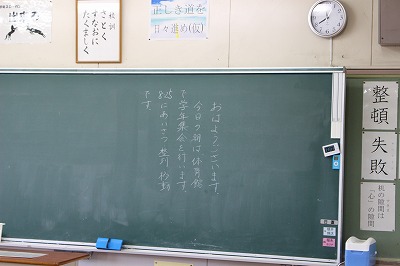 校訓
さとく
すなおに
たくましく
正しき道を
日々進め(仮)
おはようございます。
今日の朝は体育館
で学年集会を行います。
8:25にあいさつ 整列 移動
です。
整頓
失敗
机の隙間は
「心」の隙間